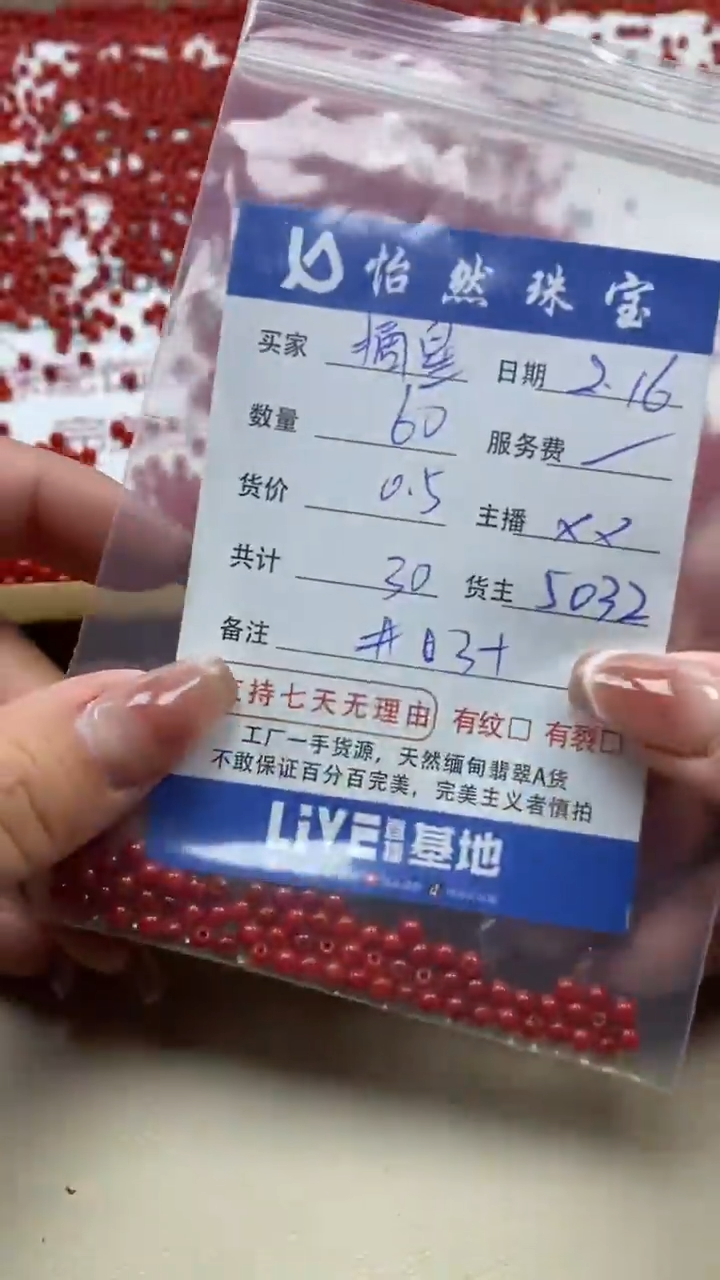 怡然珠宝
买家 摘星 日期 2.16
数量 60 服务费 /
货价 0.5 主播 XX
共计 30 货主 5032
备注
持七天无理由 有纹□ 有裂□
工厂一手货源，天然缅甸翡翠A货
不敢保证百分百完美，完美主义者慎拍
LiVE直播基地